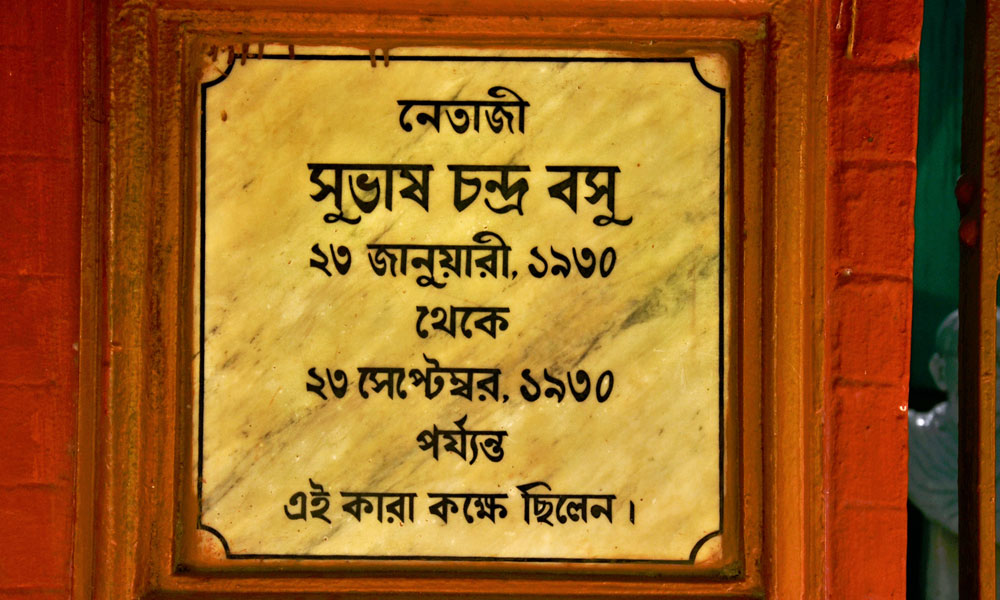 নেতাজী
সুভাষ চন্দ্র বসু
২৩ জানুয়ারী, ১৯৩০
থেকে
২৩ সেপ্টেম্বর, ১৯৩০
পর্য্যন্ত
এই কারা কক্ষে ছিলেন।